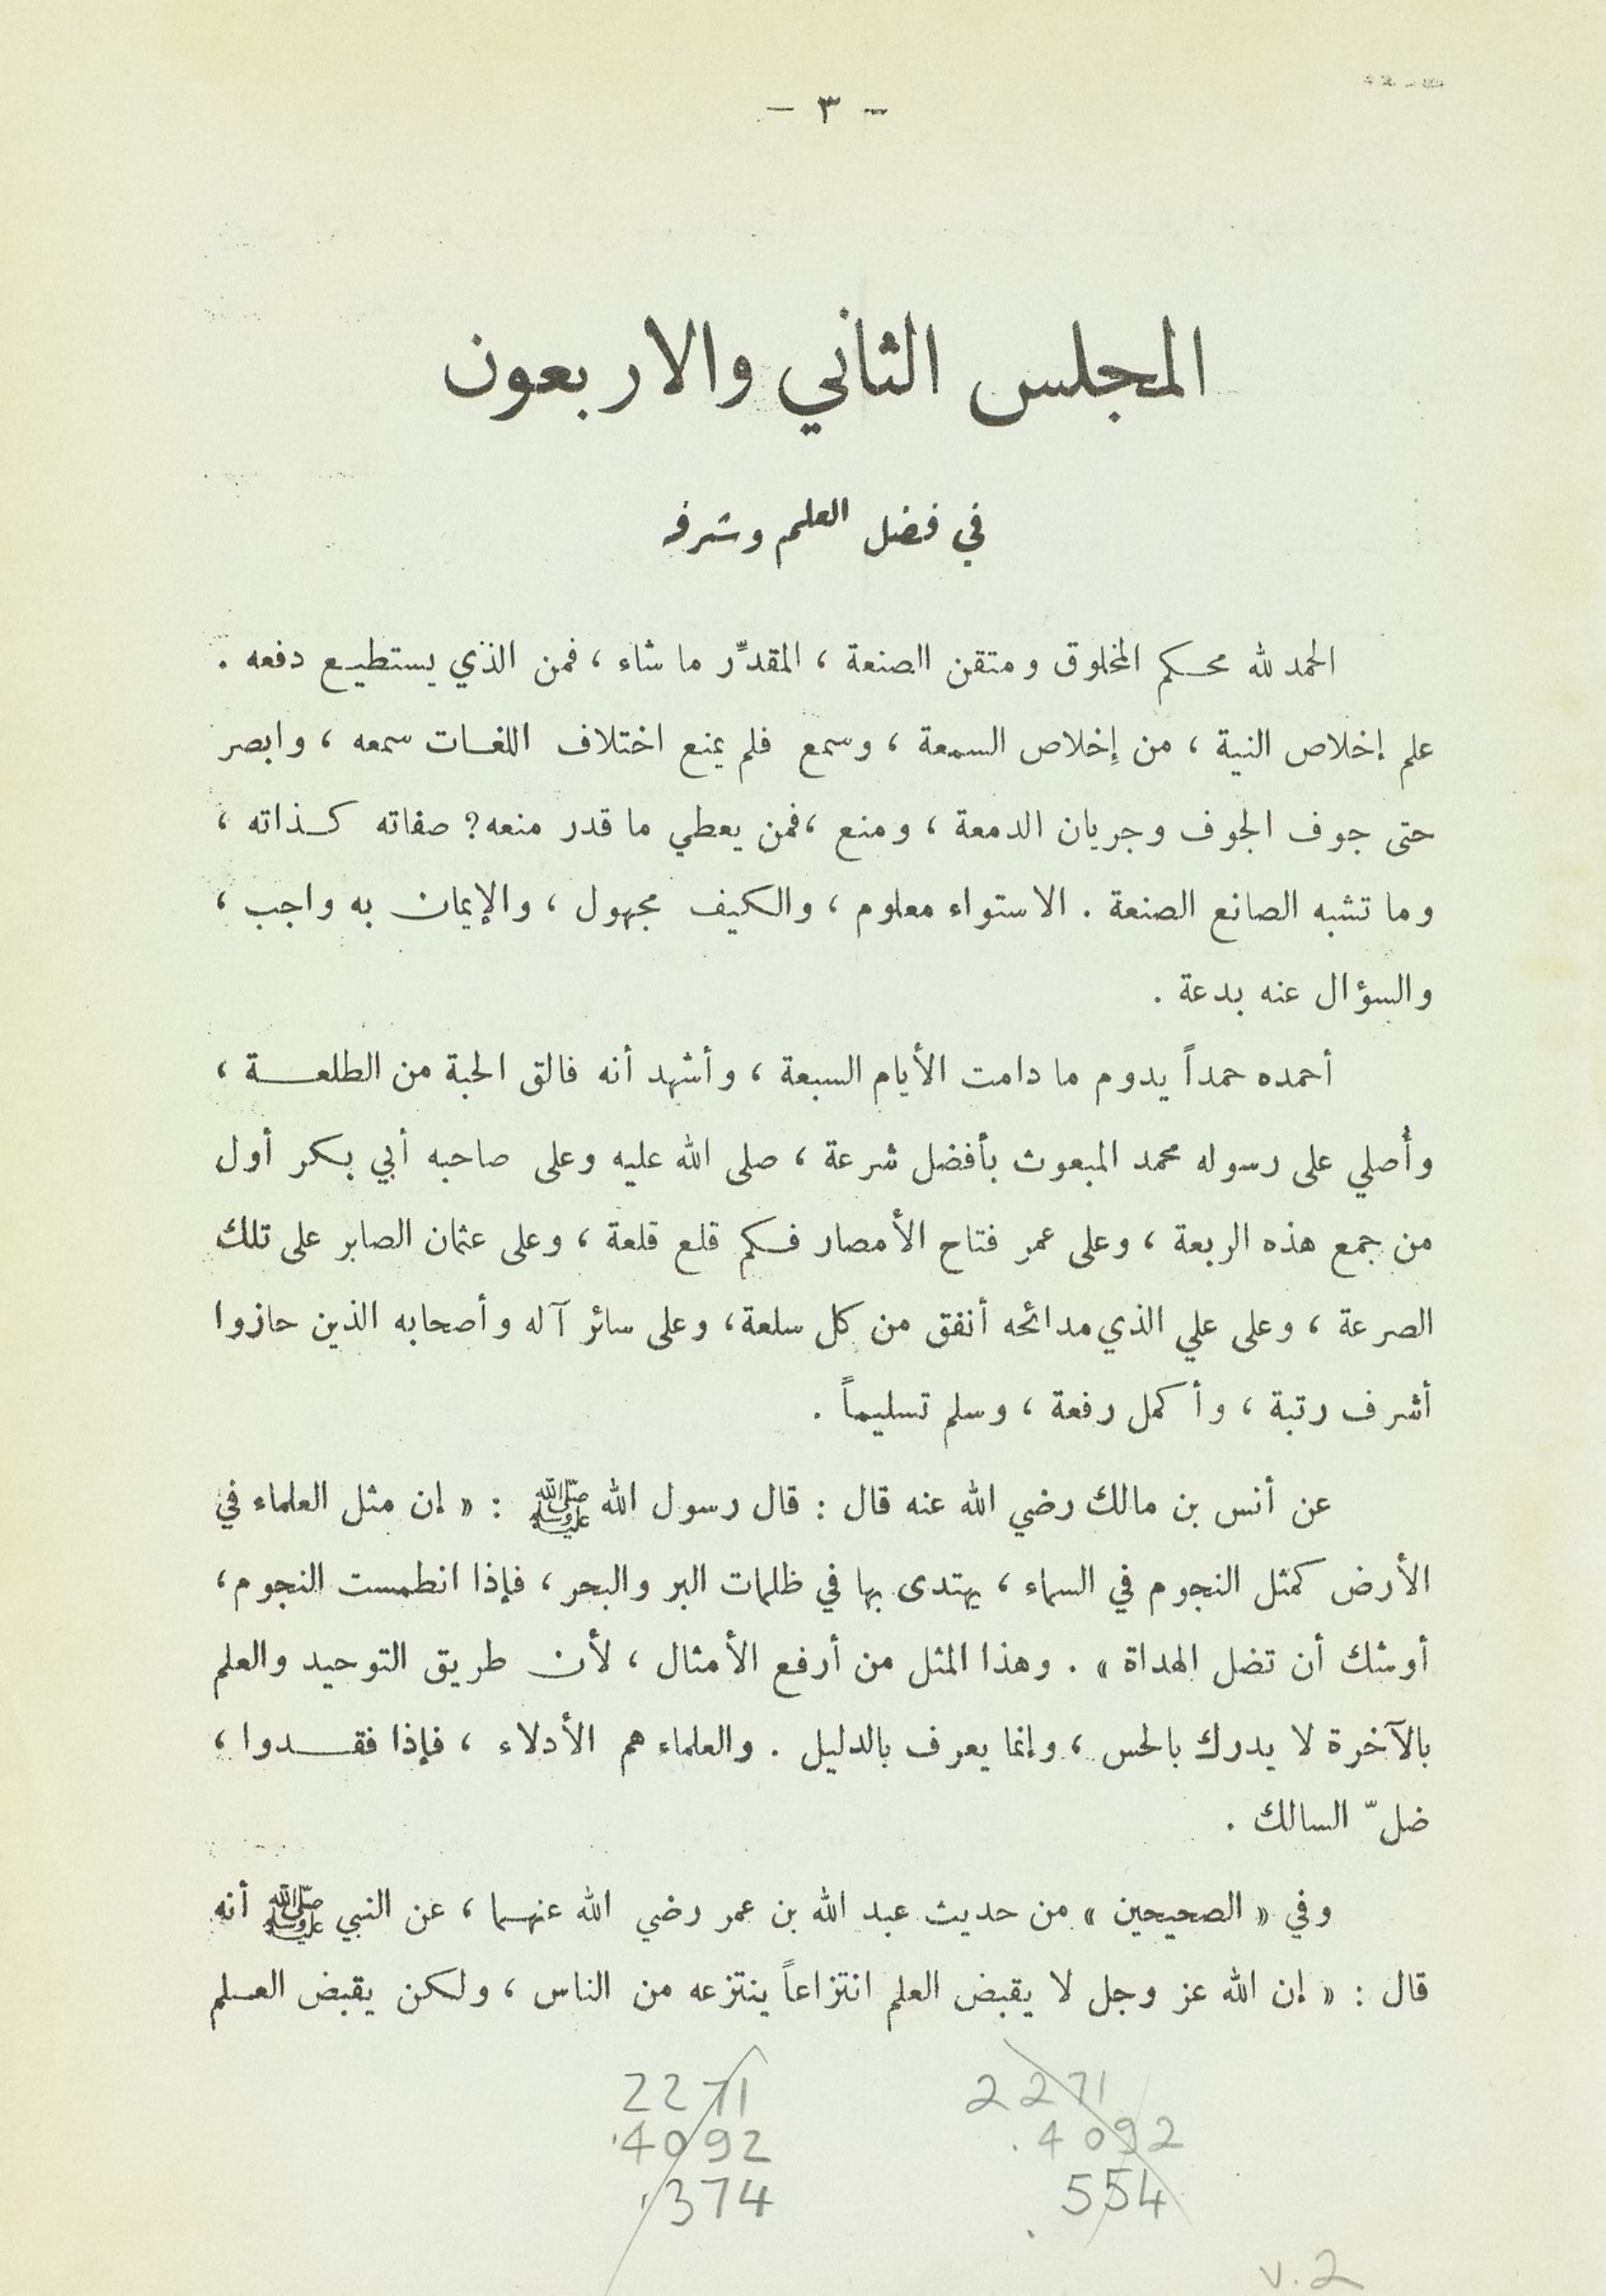 - ٣ -
المجلس الثاني والاربعون
في فضل العلم وشرفه
الحمد لله محكم المخلوق ومتقن الصنعة ، المقدِّر ما شاء ، فمن الذي يستطيع دفعه .
علم إخلاص النية ، من إِخلاص السمعة ، وسمع فلم يمنع اختلاف اللغات سمعه ، وابصر
حتى جوف الجوف وجريان الدمعة ، ومنع ، فمن يعطي ما قدر منعه ? صفاته كذاته ،
وما تشبه الصانع الصنعة . الاستواء معلوم ، والكيف مجهول ، والإيمان به واجب ،
والسؤال عنه بدعة .
أحمده حمداً يدوم ما دامت الأيام السبعة ، وأشهد أنه فالق الحبة من الطلعة ،
وأُصلي على رسوله محمد المبعوث بأفضل شرعة ، صلى الله عليه وعلى صاحبه أبي بكر أول
من جمع هذه الربعة ، وعلى عمر فتاح الأمصار فكم قلع قلعة ، وعلى عثمان الصابر على تلك
الصرعة ، وعلى علي الذي مدائحه أنفق من كل سلعة ، وعلى سائر آله وأصحابه الذين حازوا
أشرف رتبة ، وأكمل رفعة ، وسلم تسليماً .
عن أنس بن مالك رضي الله عنه قال : قال رسول الله ﷺ : « إن مثل العلماء في
الأرض كمثل النجوم في السماء ، يهتدى بها في ظلمات البر والبحر ، فإذا انطمست النجوم ،
أوشك أن تضل الهداة » . وهذا المثل من أرفع الأمثال ، لأن طريق التوحيد والعلم
بالآخرة لا يدرك بالحس ، وإنما يعرف بالدليل . والعلماء هم الأدلاء ، فإذا فقدوا ،
ضلّ السالك .
وفي « الصحيحين » من حديث عبد الله بن عمر رضي الله عنهما ، عن النبي ﷺ أنه
قال : « إن الله عز وجل لا يقبض العلم انتزاعاً ينتزعه من الناس ، ولكن يقبض العلم
2271 2271
.4092 .4092
.374 .554
v.2